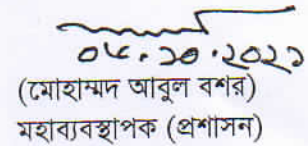 ০৫.১০.২০২১
(মোহাম্মদ আবুল বশর)
মহাব্যবস্থাপক (প্রশাসন)